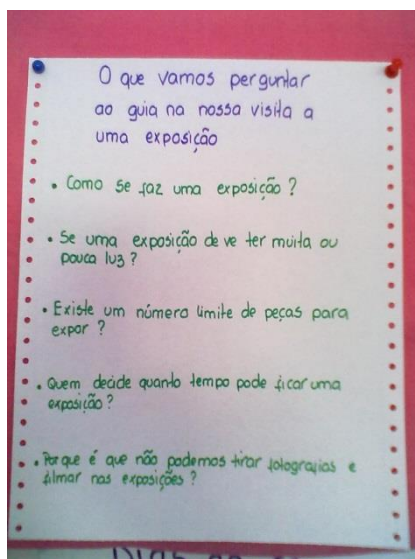 O que vamos perguntar
ao guia na nossa visita a
uma exposição
• Como se faz uma exposição?
• Se uma exposição deve ter muita ou
pouca luz?
• Existe um número limite de peças para
expor?
• Quem decide quanto tempo pode ficar uma
exposição?
• Porque é que não podemos tirar fotografias e
filmar nas exposições?